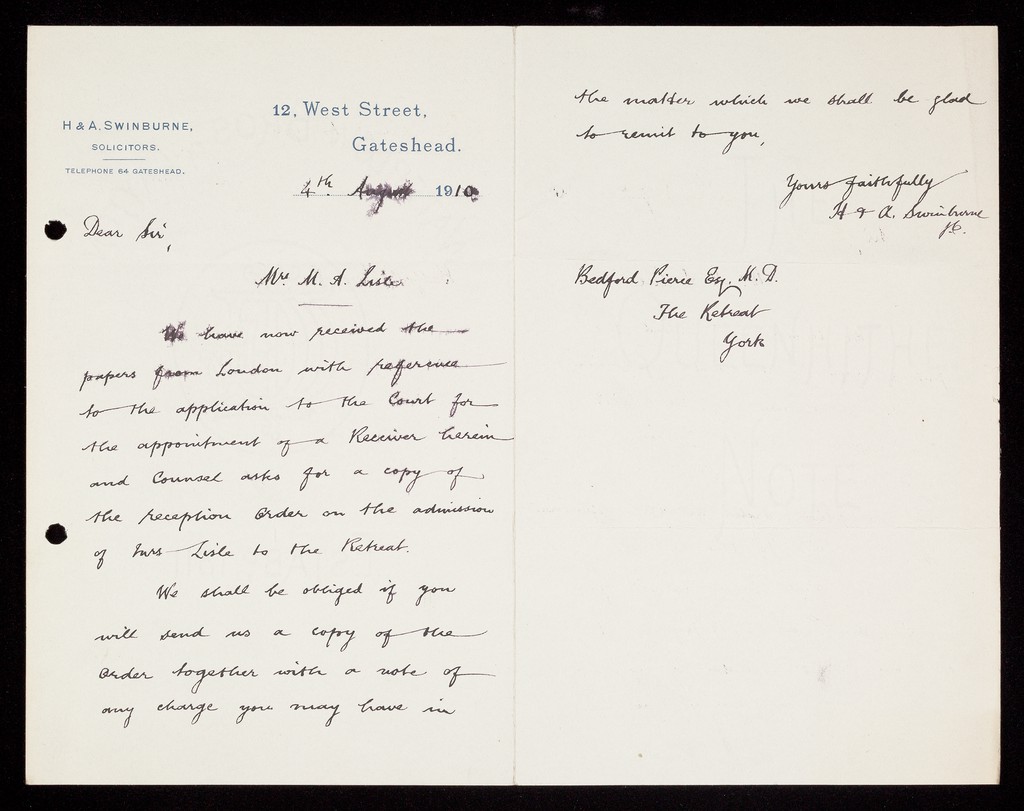 H & A. SWINBURNE,
SOLICITORS.
TELEPHONE 64 GATESHEAD.
12, West Street,
Gateshead.
4th August 1910
Dear Sir,
Mrs M. A. Lisle
We have now received the
papers from London with reference
to the application to the Court for
the appointment of a Receiver herein
and Counsel asks for a copy of
the reception order on the admission
of Mrs Lisle to the Retreat.
We shall be obliged if you
will send us a copy of the
order together with a note of
any charge you may have in
the matter which we shall be glad
to remit to you,
Yours faithfully
H & A. Swinburne
Bedford Pierce Esq. M.D.
The Retreat
York